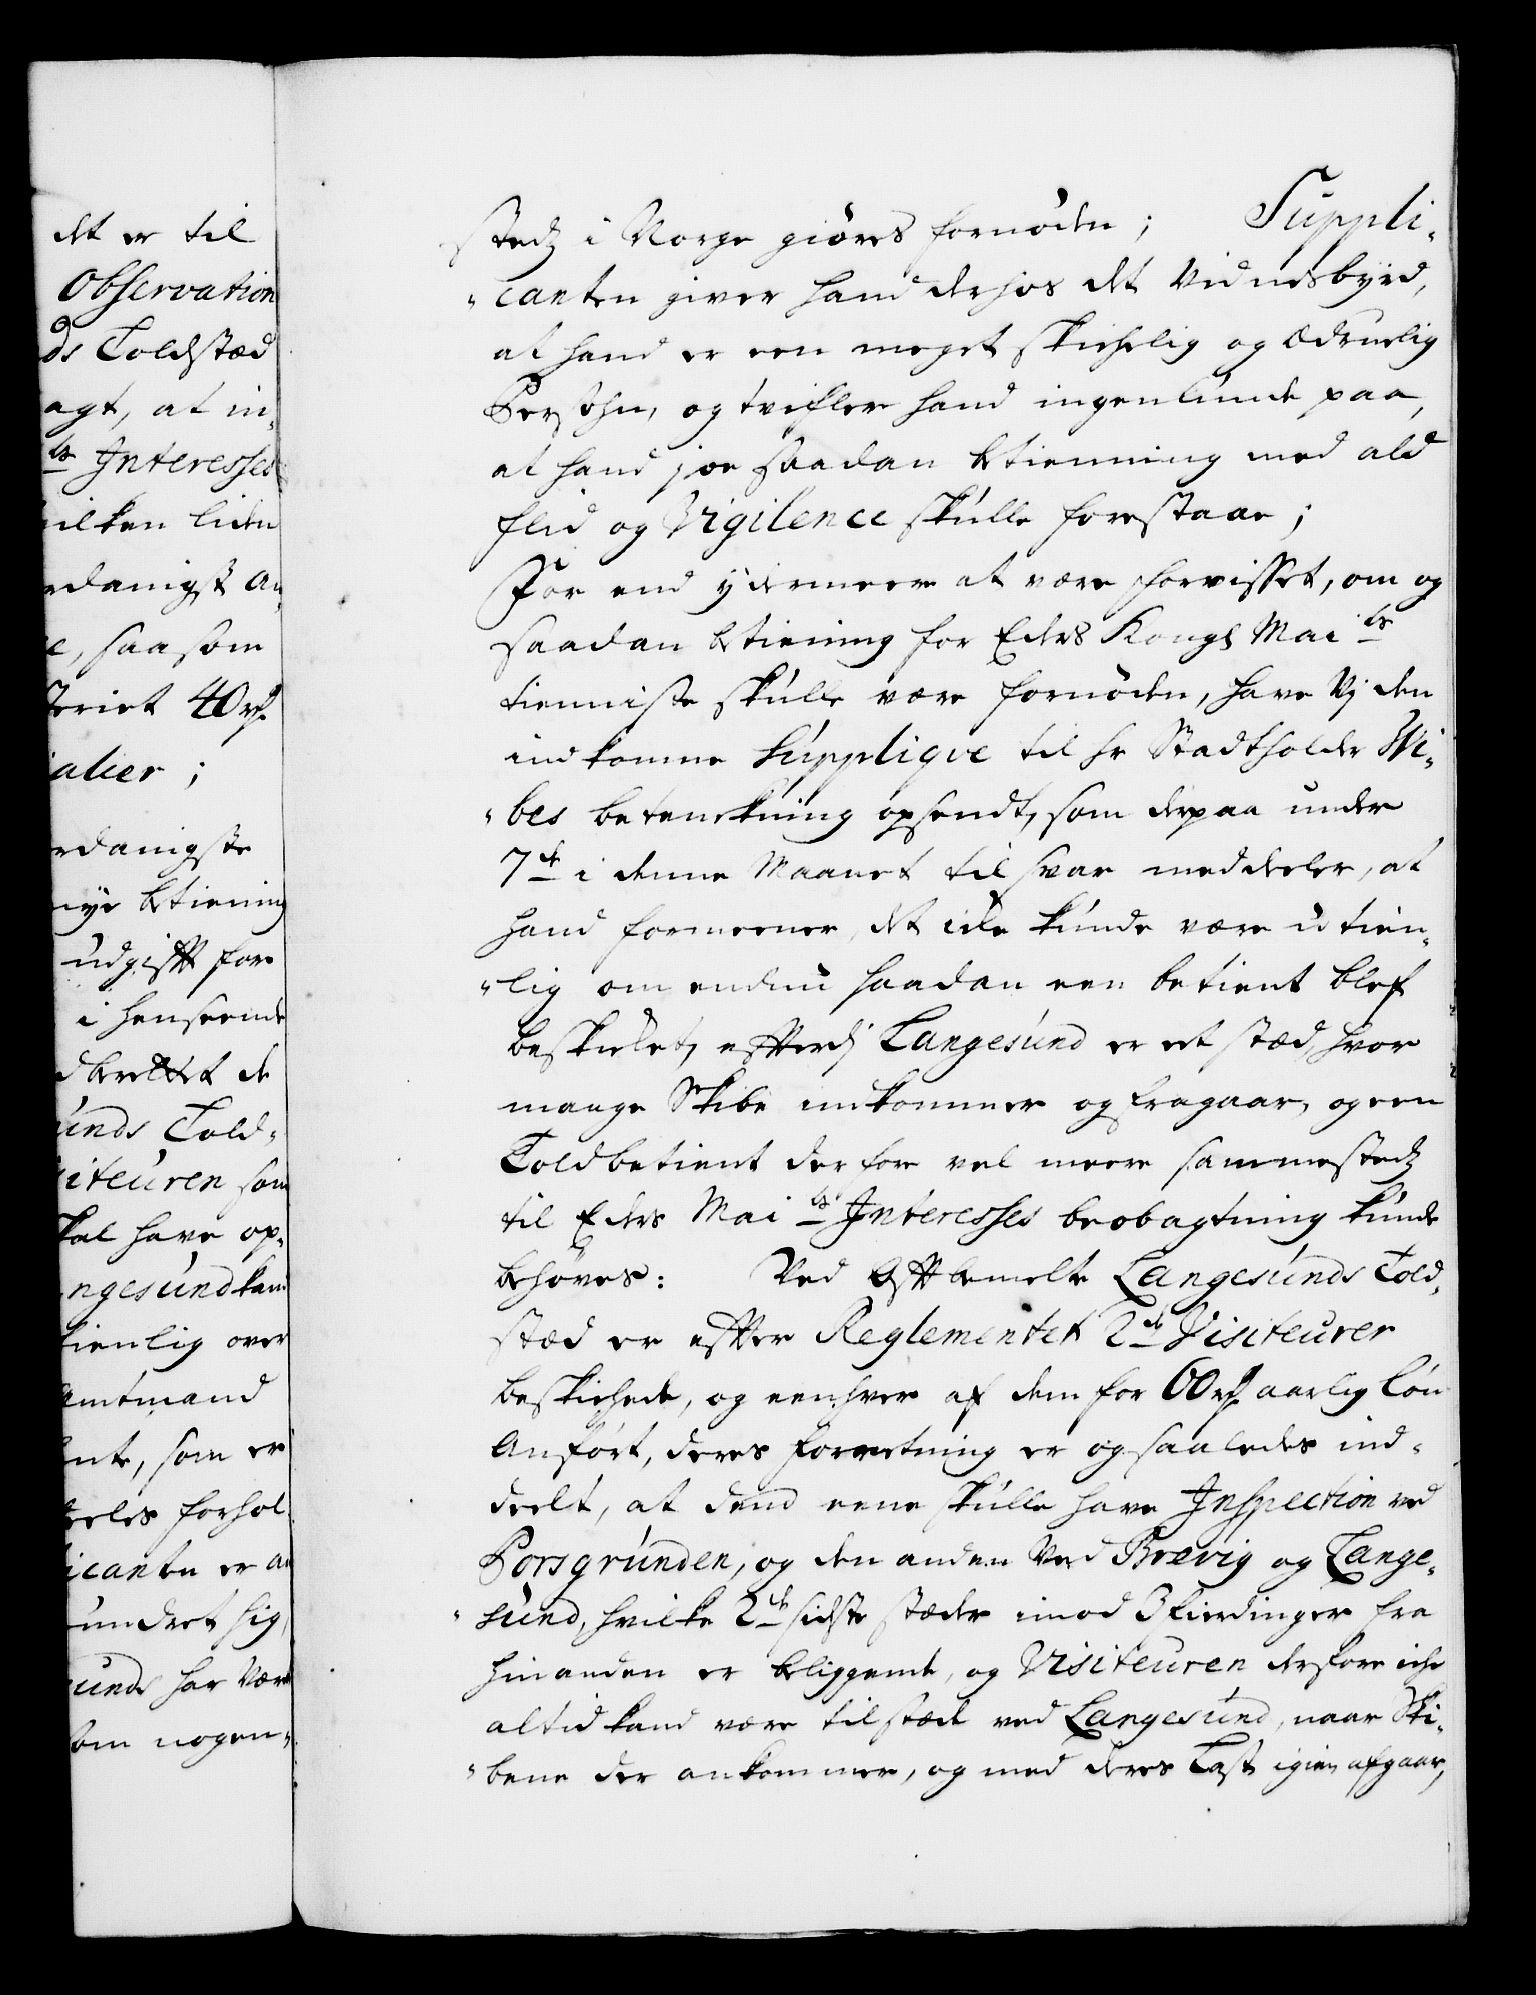 det er til
Observation
ds Toldstæd
agt, at in„
ts Interesses
hvilken liden
rdanigst an
e, saa som
teriet 40 rd.
alier ;
rdanigste
nye betiening
udgifft for
i henseende
de
unds Told„
siteuren som
skal have op„
ngesund kand
tienlig over
Amtmand
nte, som er
deeles forhol
icanten er an
undret sig,
unds har Være
som nogen„
stedz i Norge giöres fornöden ; Suppli„
„canten giver hand derhos det Vidnesbyrd,
at hand er een meget skichelig og ædruelig
Persohn, og tvifler hand ingenlunde paa,
at hand joe saadan betienning med ald
flid og Vigilence skulle forestaae ;
For end ydermeere at være forvisset, om og
saadan betiening for Eders Kongl Mai ts
tienniste skulle være fornöden, have Vj den
indkomne Supplique til hr Stadtholder Wi„
„bes betenckning opsendt, som derpaa under
7de i denne Maanet til svar meddeeler, at
hand formeener, det icke kunde være utien„
„lig om endnu saadan een betient blef
beskicket, effterdj Langesund er et stæd, hvor
mange Skibe indkommer og fragaar, og een
Toldbetient derfor vel meere sammestedz
til Eders Mai ts Interesses beobagtning kunde
behöves: Ved bemelte Langesunds Told„
stæd er effter Reglementet 2de Visiteurer
beskichede, og eenhver af dem for 60 rd. aarlig Lön
Anfört, deres forretning er og saaledes ind„
deelt, at dend eene skulle have Inspection ved
Porsgrunden, og den anden Ved Brevig og Lange„
„sund, hvilke 2de sidste stæder imod 3 fierdinger fra
hinanden er beliggende, og Visiteuren derfore iche
altid kand være tilstæde ved Langesund, naar Ski„
„bene der ankommer, og med deres Last igien afgaar,